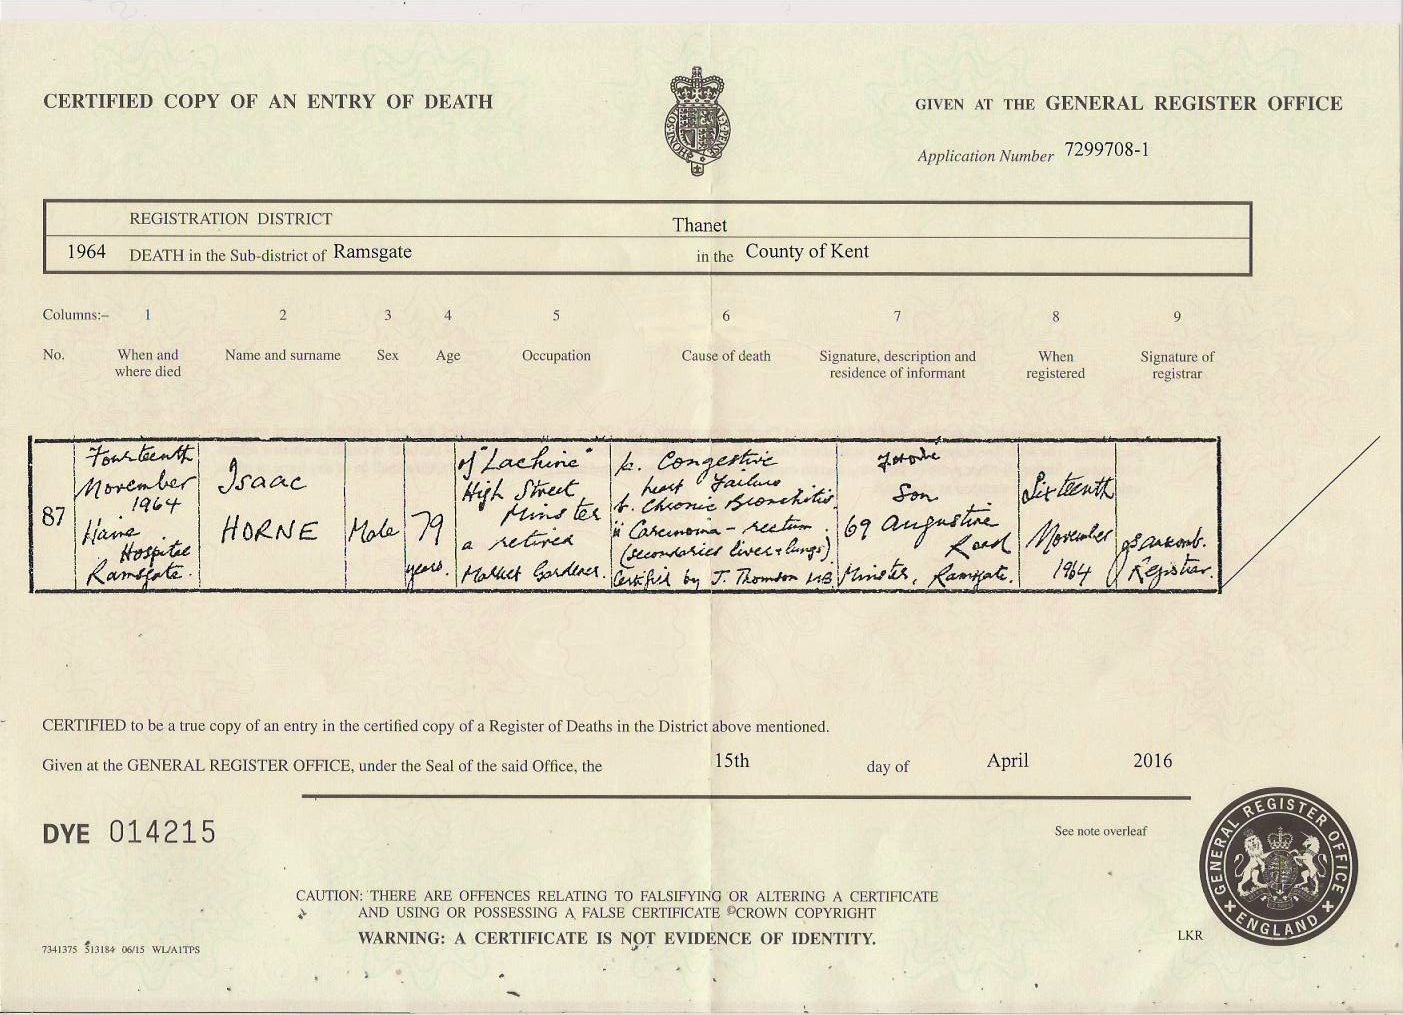 CERTIFIED COPY OF AN ENTRY OF DEATH
GIVEN AT THE GENERAL REGISTER OFFICE
Application Number 7299708-1
REGISTRATION DISTRICT Thanet
1964 DEATH in the Sub-district of Ramsgate in the County of Kent
Columns:– 1 2 3 4 5 6 7 8 9
No.
When and
where died
Name and surname
Sex
Age
Occupation
Cause of death
Signature, description and
residence of informant
When
registered
Signature of
registrar
87
Fourteenth
November
1964
Haine
Hospital
Ramsgate.
Isaac
HORNE
Male
79
years.
of "Lachine"
High Street
Minster
a retired
Market Gardener.
Congestive
heart failure
b. Chronic Bronchitis
ii Carcinoma - rectum.
(secondaries liver + lungs)
Certified by J. Thomson MB.
Son
69 Augustine
Road
Minster, Ramsgate.
Sixteenth
November
1964
Registrar.
CERTIFIED to be a true copy of an entry in the certified copy of a Register of Deaths in the District above mentioned.
Given at the GENERAL REGISTER OFFICE, under the Seal of the said Office, the 15th day of April 2016
DYE 014215
See note overleaf
GENERAL REGISTER OFFICE
ENGLAND
CAUTION: THERE ARE OFFENCES RELATING TO FALSIFYING OR ALTERING A CERTIFICATE
AND USING OR POSSESSING A FALSE CERTIFICATE ©CROWN COPYRIGHT
WARNING: A CERTIFICATE IS NOT EVIDENCE OF IDENTITY.
LKR
7341375 513184 06/15 WL/A1TPS